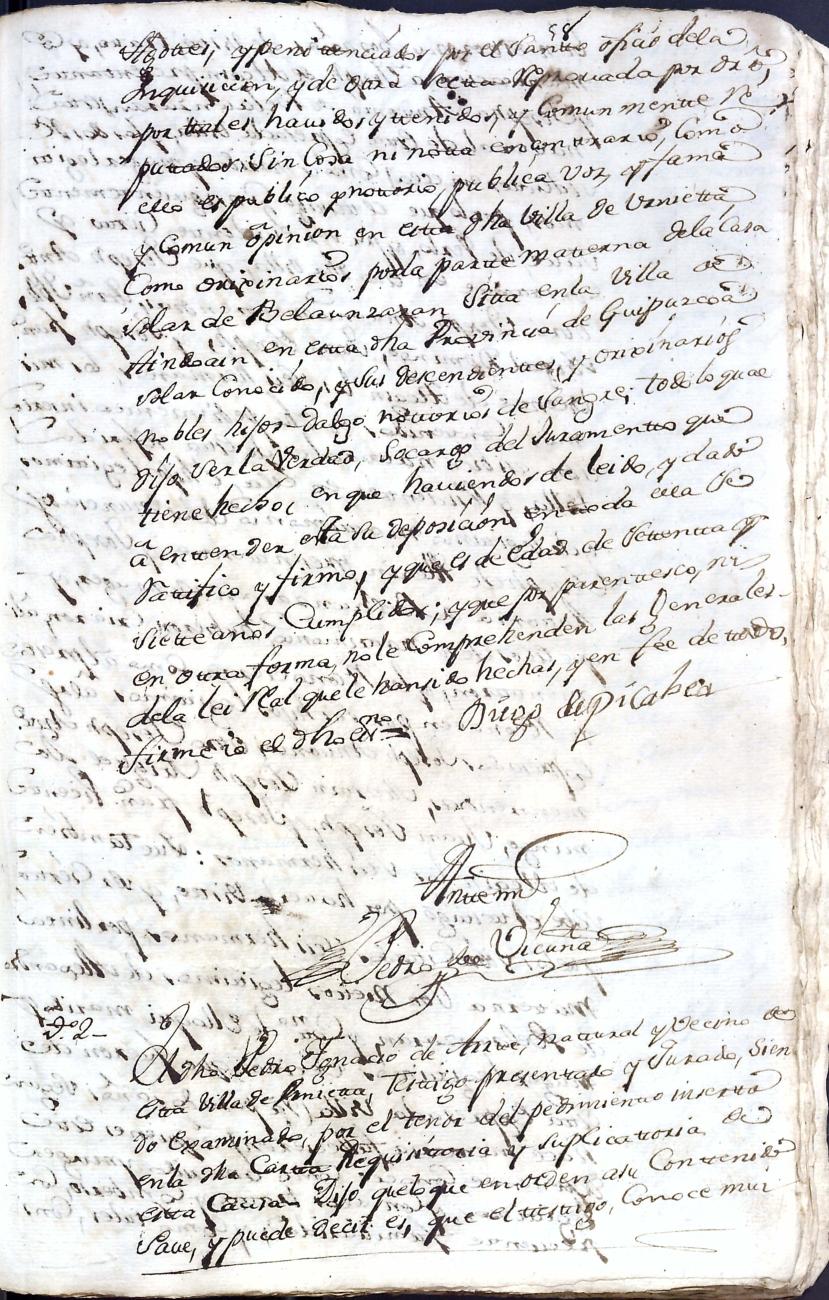 58
Agotes, y penitenciados por el Santo ofiçio dela
Inquisicion, y de otra secta Reprovada por dro,
por tales havidos y tenidos, y Comunmente Re
putados, Sin Cosa ni nota encontrario, Como
ello es publico y notorio, publica voz, y fama
y Comun opinion en esta dha Villa de Urnieta,
Como orixinarios por la parte materna dela Casa
solar de Belaunzaran Sita enla Villa de
Andoain en esta dha Provincia de Guipuzcoa
solar Conocido, y sus descendientes, y orixinarios
nobles hijos-dalgo notorios de Sangre; todo lo que
dijo ser la Verdad, Socargo del Juramento que
tiene hecho, en que haviendosele leido, y dado
a entender esta su deposicion en toda ella Se
Ratifico y firmo, y que es de edad de Setenta y
siete años Cumplidos; y que por parentesco, ni
en otra forma, nole Comprehenden las Generales
dela lei Real quele han sido hechas, y en fee de todo,
firme io el dho essno = Diego de Picabea
Ante mi
Pedro de Vicuña
tº 2
El dho Pedro Ignacio de Arrue, natural y Vecino de
esta Villa de Urnieta, Testigo presentado y Jurado, Sien
do examinado, por el tenor del pedimiento inserto
enla dha Carta Requisitoria y suplicatoria de
esta Causa Dijo quelo que en orden asu Contenido
Save, y puede decir es, que el testigo, Conoce mui